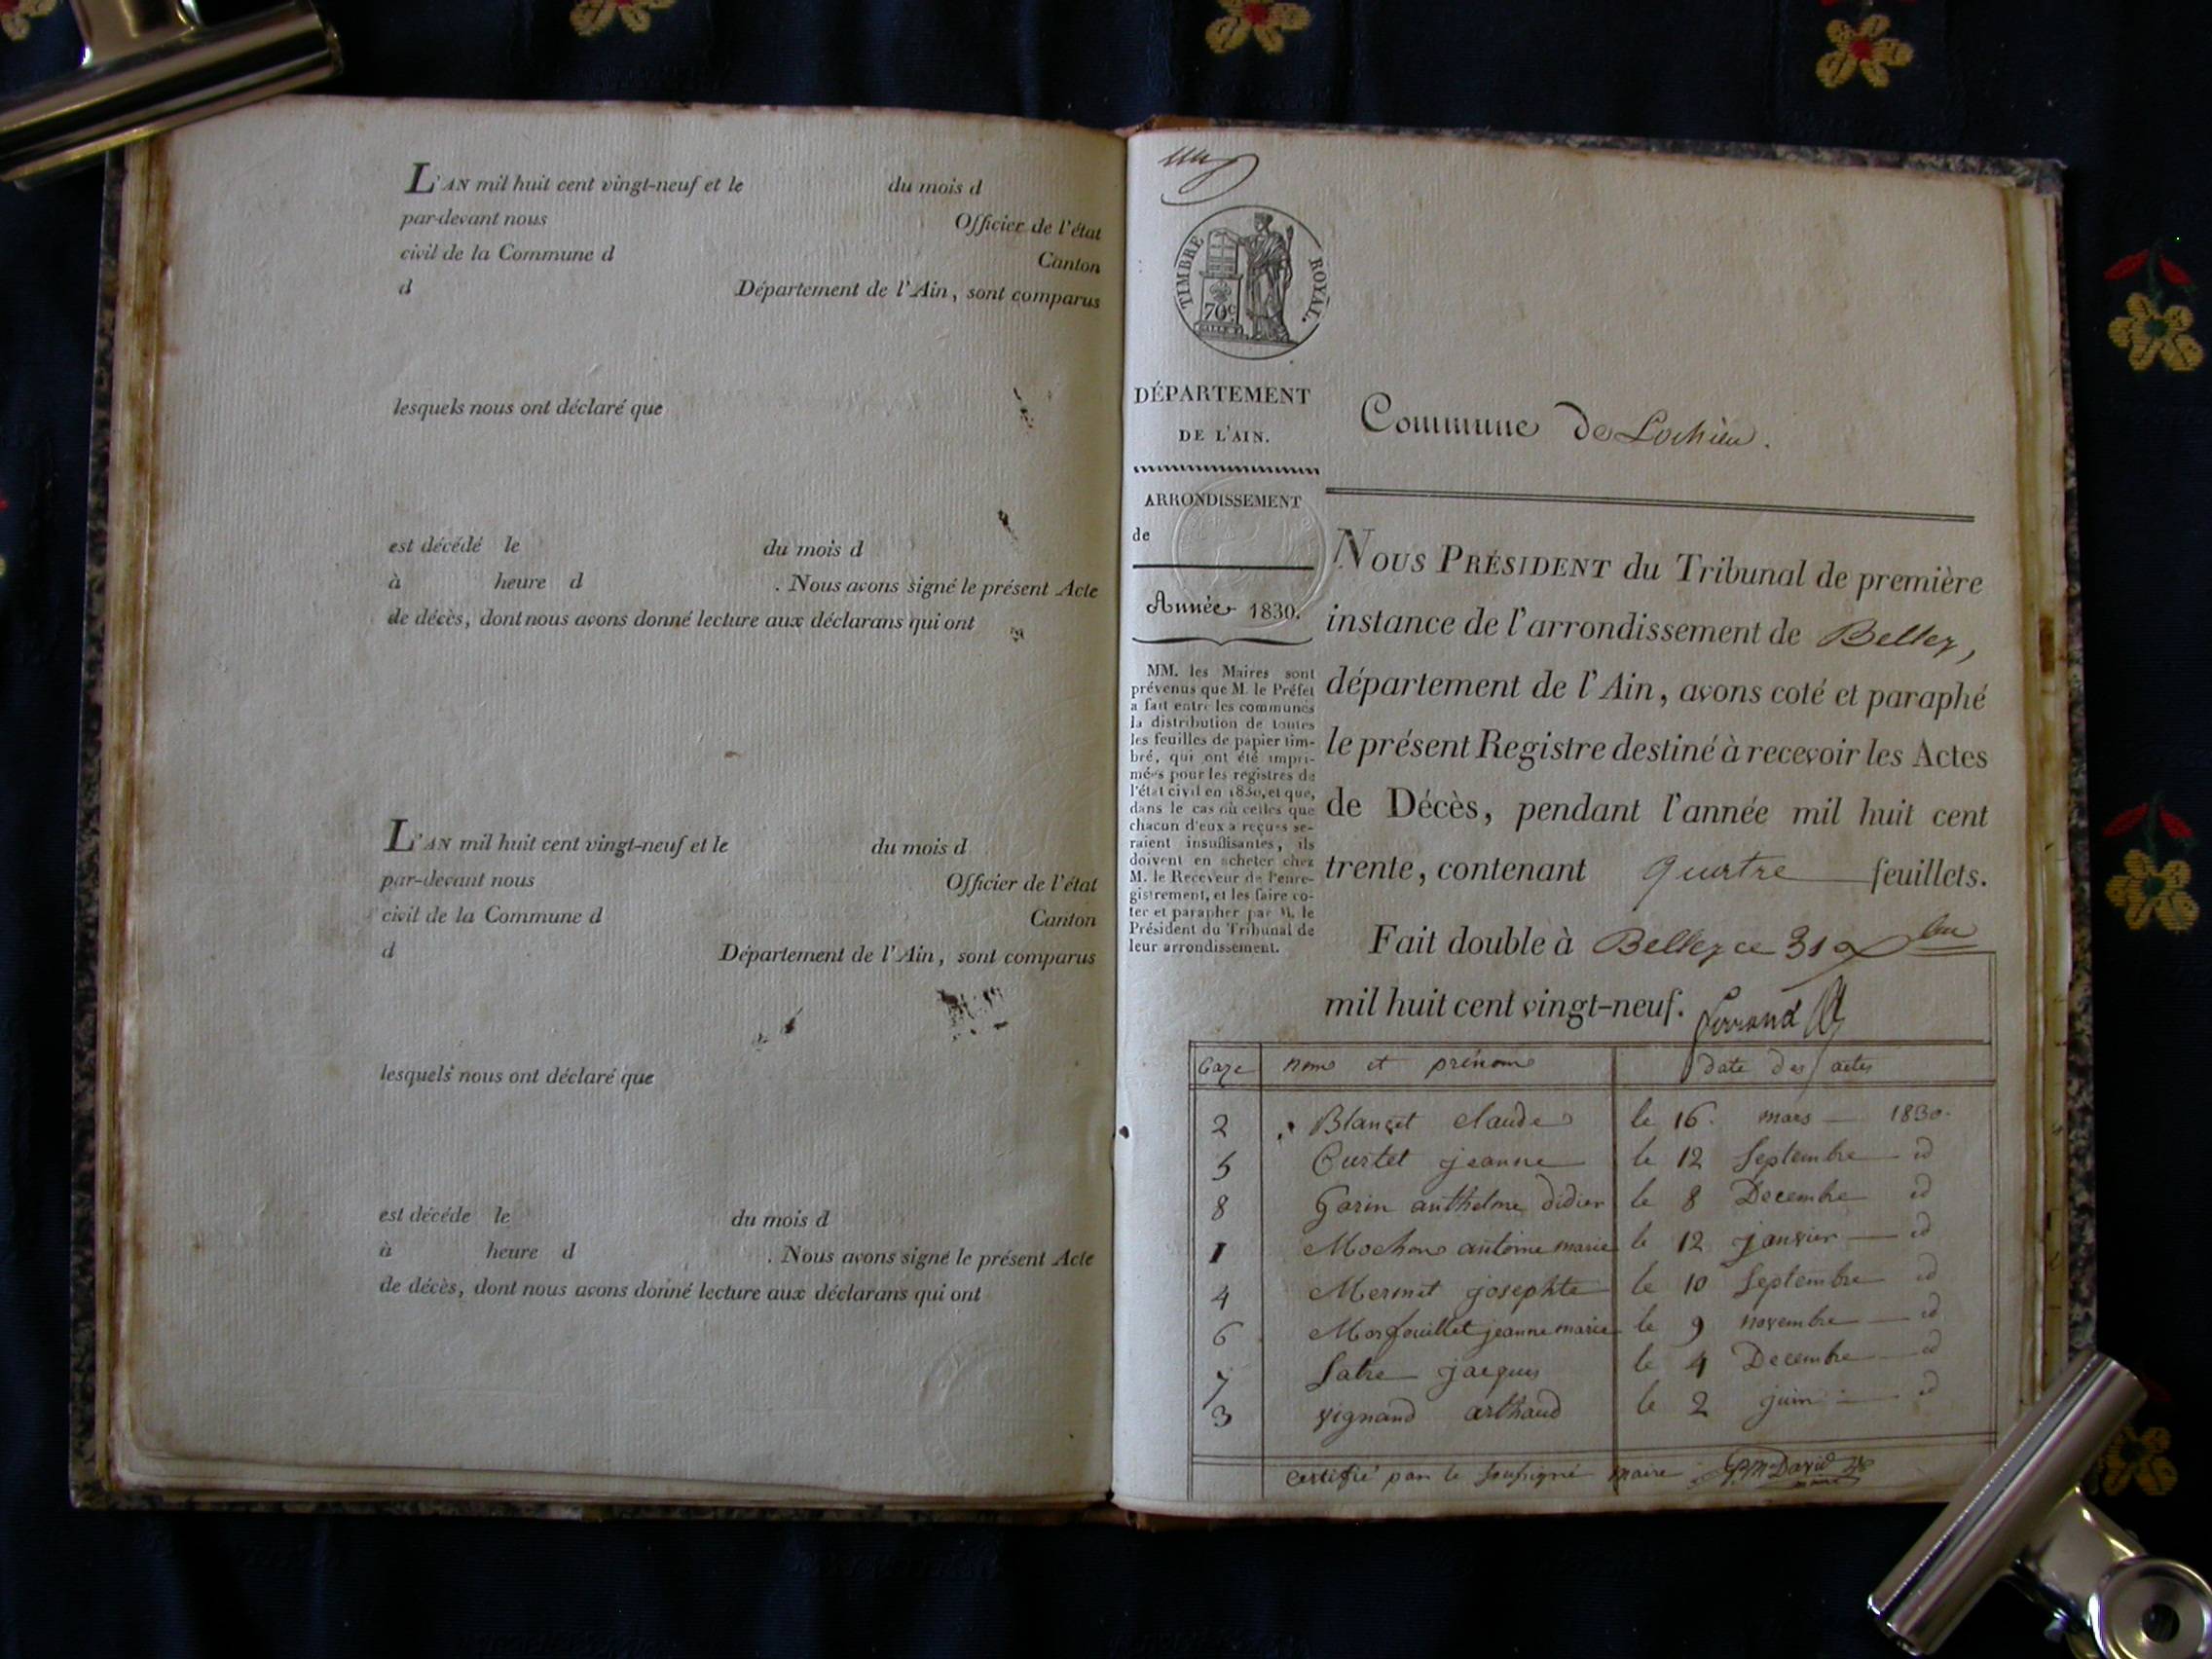 L'AN mil huit cent vingt-neuf et le du mois d
par-devant nous Officier de l'état
civil de la Commune d Canton
d Département de l'Ain, sont comparus
lesquels nous ont déclaré que
est décédé le du mois d
à heure d . Nous avons signé le présent Acte
de décès, dont nous avons donné lecture aux déclarans qui ont
L'AN mil huit cent vingt-neuf et le du mois d
par-devant nous Officier de l'état
civil de la Commune d Canton
d Département de l'Ain, sont comparus
lesquels nous ont déclaré que
est décédé le du mois d
à heure d . Nous avons signé le présent Acte
de décès, dont nous avons donné lecture aux déclarans qui ont
TIMBRE ROYAL.
70c
DÉPARTEMENT
DE L'AIN.
Commune de Lochieu.
ARRONDISSEMENT
de
Année 1830.
MM. les Maires sont
prévenus que M. le Préfet
a fait entre les communes
la distribution de toutes
les feuilles de papier tim-
bré, qui ont été impri-
mées pour les registres de
l'état civil en 1830, et que,
dans le cas où celles que
chacun d'eux a reçues se-
raient insuffisantes, ils
doivent en acheter chez
M. le Receveur de l'enre-
gistrement, et les faire co-
ter et parapher par M. le
Président du Tribunal de
leur arrondissement.
NOUS PRÉSIDENT du Tribunal de première
instance de l'arrondissement de Belley,
département de l'Ain, avons coté et paraphé
le présent Registre destiné à recevoir les Actes
de Décès, pendant l'année mil huit cent
trente, contenant quatre feuillets.
Fait double à Belley ce 31 xbre
mil huit cent vingt-neuf.
Caze nom et prénom date des actes
2 Blançet claude le 16 mars 1830
5 Curtet jeanne le 12 Septembre id
8 Garin anthelme didier le 8 Decembre id
1 Mochon antoine marie le 12 janvier id
4 Mermet josephte le 10 Septembre id
6 Morfouillet jeanne marie le 9 novembre id
7 Satre jacques le 4 Decembre id
3 vignand arthaud le 2 juin id
Certifié par le soussigné maire David